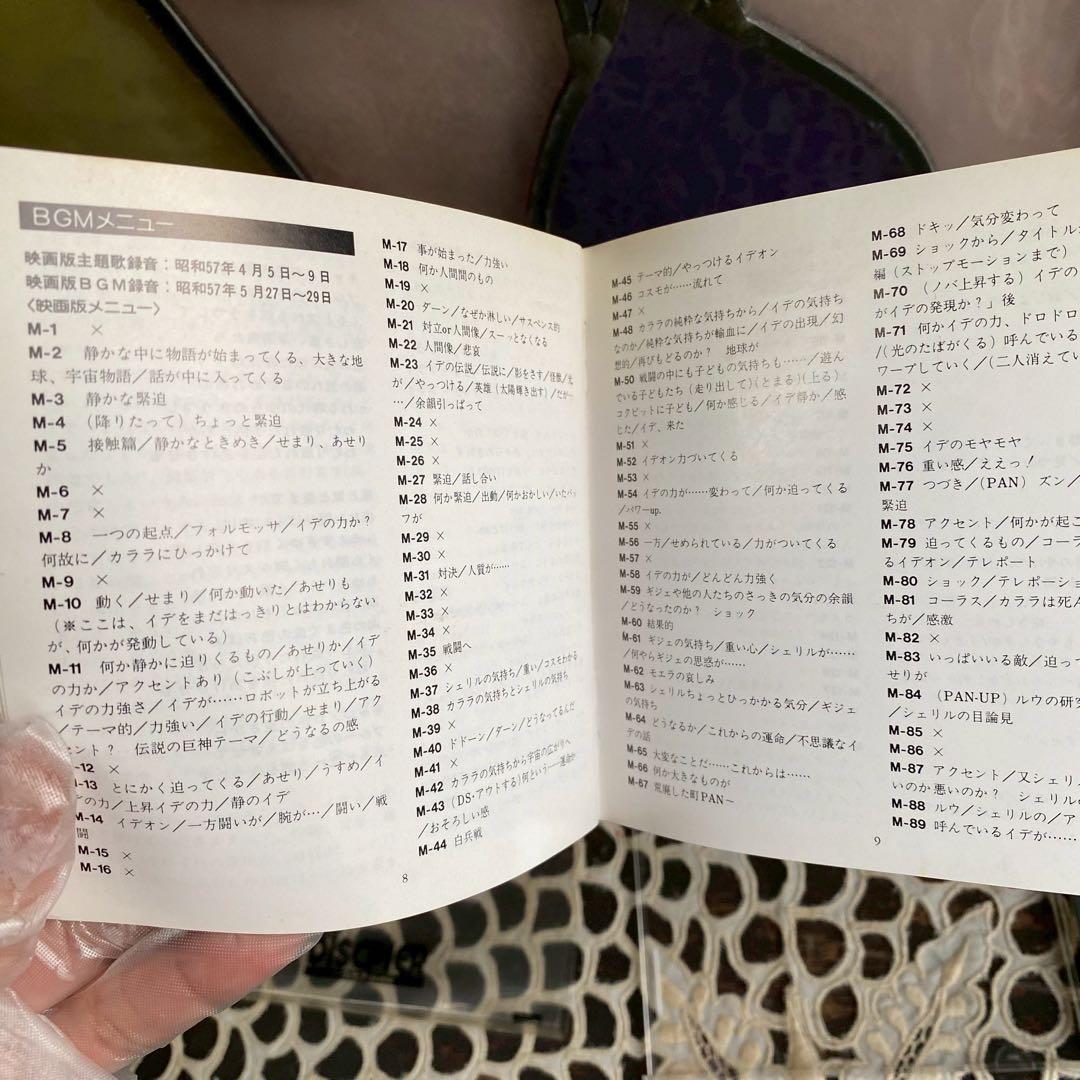 BGMメニュー
映画版主題歌録音：昭和57年4月5日〜9日
映画版BGM録音：昭和57年5月27日〜29日
〈映画版メニュー〉
M-1 ×
M-2 静かな中に物語が始まってくる、大きな地
球、宇宙物語／話が中に入ってくる
M-3 静かな緊迫
M-4 （降りたって）ちょっと緊迫
M-5 接触篇／静かなときめき／せまり、あせり
か
M-6 ×
M-7 ×
M-8 一つの起点／フォルモッサ／イデの力か？
何故に／カララにひっかけて
M-9 ×
M-10 動く／せまり／何か動いた／あせりも
（※ここは、イデをまだはっきりとはわからない
が、何かが発動している）
M-11 何か静かに迫りくるもの／あせりか／イデ
の力か／アクセントあり（こぶしが上っていく）
イデの力強さ／イデが……ロボットが立ち上がる
／テーマ的／力強い／イデの行動／せまり／アク
セント？ 伝説の巨神テーマ／どうなるの感
-12 ×
-13 とにかく迫ってくる／あせり／うすめ／イ
デの力／上昇イデの力／静のイデ
M-14 イデオン／一方闘いが／腕が…／闘い／戦
闘
M-15 ×
M-16 ×
M-17 事が始まった／力強い
M-18 何か人間間のもの
M-19 ×
M-20 ダーン／なぜか淋しい／サスペンス的
M-21 対立or人間像／スーッとなくなる
M-22 人間像／悲哀
M-23 イデの伝説／伝説に／影をさす／怪獣／光
が／やっつける／英雄（太陽輝き出す）／だが…
…／余韻引っぱって
M-24 ×
M-25 ×
M-26 ×
M-27 緊迫／話し合い
M-28 何か緊迫／出動／何かおかしい／いたバッ
フが
M-29 ×
M-30 ×
M-31 対決／人質が……
M-32 ×
M-33 ×
M-34 ×
M-35 戦闘へ
M-36 ×
M-37 シェリルの気持ち／重い／コスモわかる
M-38 カララの気持ちとシェリルの気持ち
M-39 ×
M-40 ドドーン／ターン／どうなってるんだ
M-41 ×
M-42 カララの気持ちから宇宙の広がりへ
M-43 （DS・アウトする）何という──運命か
／おそろしい感
M-44 白兵戦
8
M-45 テーマ的／やっつけるイデオン
M-46 コスモが……流れて
M-47 ×
M-48 カララの純粋な気持ちから／イデの気持ち
なのか／純粋な気持ちが輸血に／イデの出現／幻
想的／再びもどるのか？ 地球が
M-50 戦闘の中にも子どもの気持ちも……／遊ん
でいる子どもたち（走り出して）（とまる）（上る）
コクピットに子ども／何か感じる／イデ静か／感
じた／イデ、来た
M-51 ×
M-52 イデオン力づいてくる
M-53 ×
M-54 イデの力が……変わって／何か迫ってくる
／パワーup.
M-55 ×
M-56 一方／せめられている／力がついてくる
M-57 ×
M-58 イデの力が／どんどん力強く
M-59 ギジェや他の人たちのさっきの気分の余韻
／どうなったのか？ ショック
M-60 結果的
M-61 ギジェの気持ち／重い心／シェリルが……
／何やらギジェの思惑が……
M-62 モエラの哀しみ
M-63 シェリルちょっとひっかかる気分／ギジェ
の気持ち
M-64 どうなるか／これからの運命／不思議なイ
デの話
M-65 大変なことだ……これからは……
M-66 何か大きなものが
M-67 荒廃した町PAN−
M-68 ドキッ／気分変わって
M-69 ショックから／タイトル
編（ストップモーションまで）
M-70 （ノバ上昇する）イデの
がイデの発現か？」後
M-71 何かイデの力、ドロドロ
／（光のたばがくる）呼んでいる
ワープしていく／（二人消えてい
M-72 ×
M-73 ×
M-74 ×
M-75 イデのモヤモヤ
M-76 重い感／ええっ！
M-77 つづき／（PAN） ズン／
緊迫
M-78 アクセント／何かが起こ
M-79 迫ってくるもの／コーラ
るイデオン／テレポート
M-80 ショック／テレポーショ
M-81 コーラス／カララは死ん
ちが／感激
M-82 ×
M-83 いっぱいいる敵／迫っ
せりが
M-84 （PAN-UP）ルウの研究
／シェリルの目論見
M-85 ×
M-86 ×
M-87 アクセント／又シェリ
いのか悪いのか？ シェリルの
M-88 ルウ／シェリルの／ア
M-89 呼んでいるイデが……
9